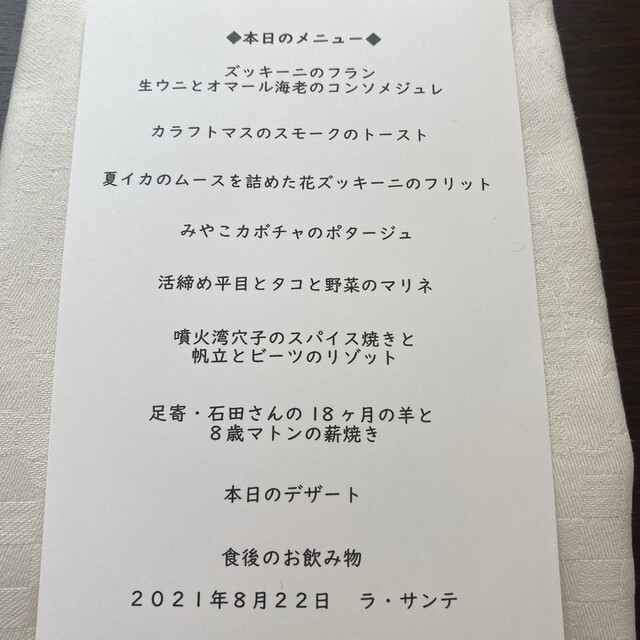 ◆本日のメニュー◆
ズッキーニのフラン
生ウニとオマール海老のコンソメジュレ
カラフトマスのスモークのトースト
夏イカのムースを詰めた花ズッキーニのフリット
みやこカボチャのポタージュ
活締め平目とタコと野菜のマリネ
噴火湾穴子のスパイス焼きと
帆立とビーツのリゾット
足寄・石田さんの18ヶ月の羊と
8歳マトンの薪焼き
本日のデザート
食後のお飲み物
2021年8月22日　ラ・サンテ